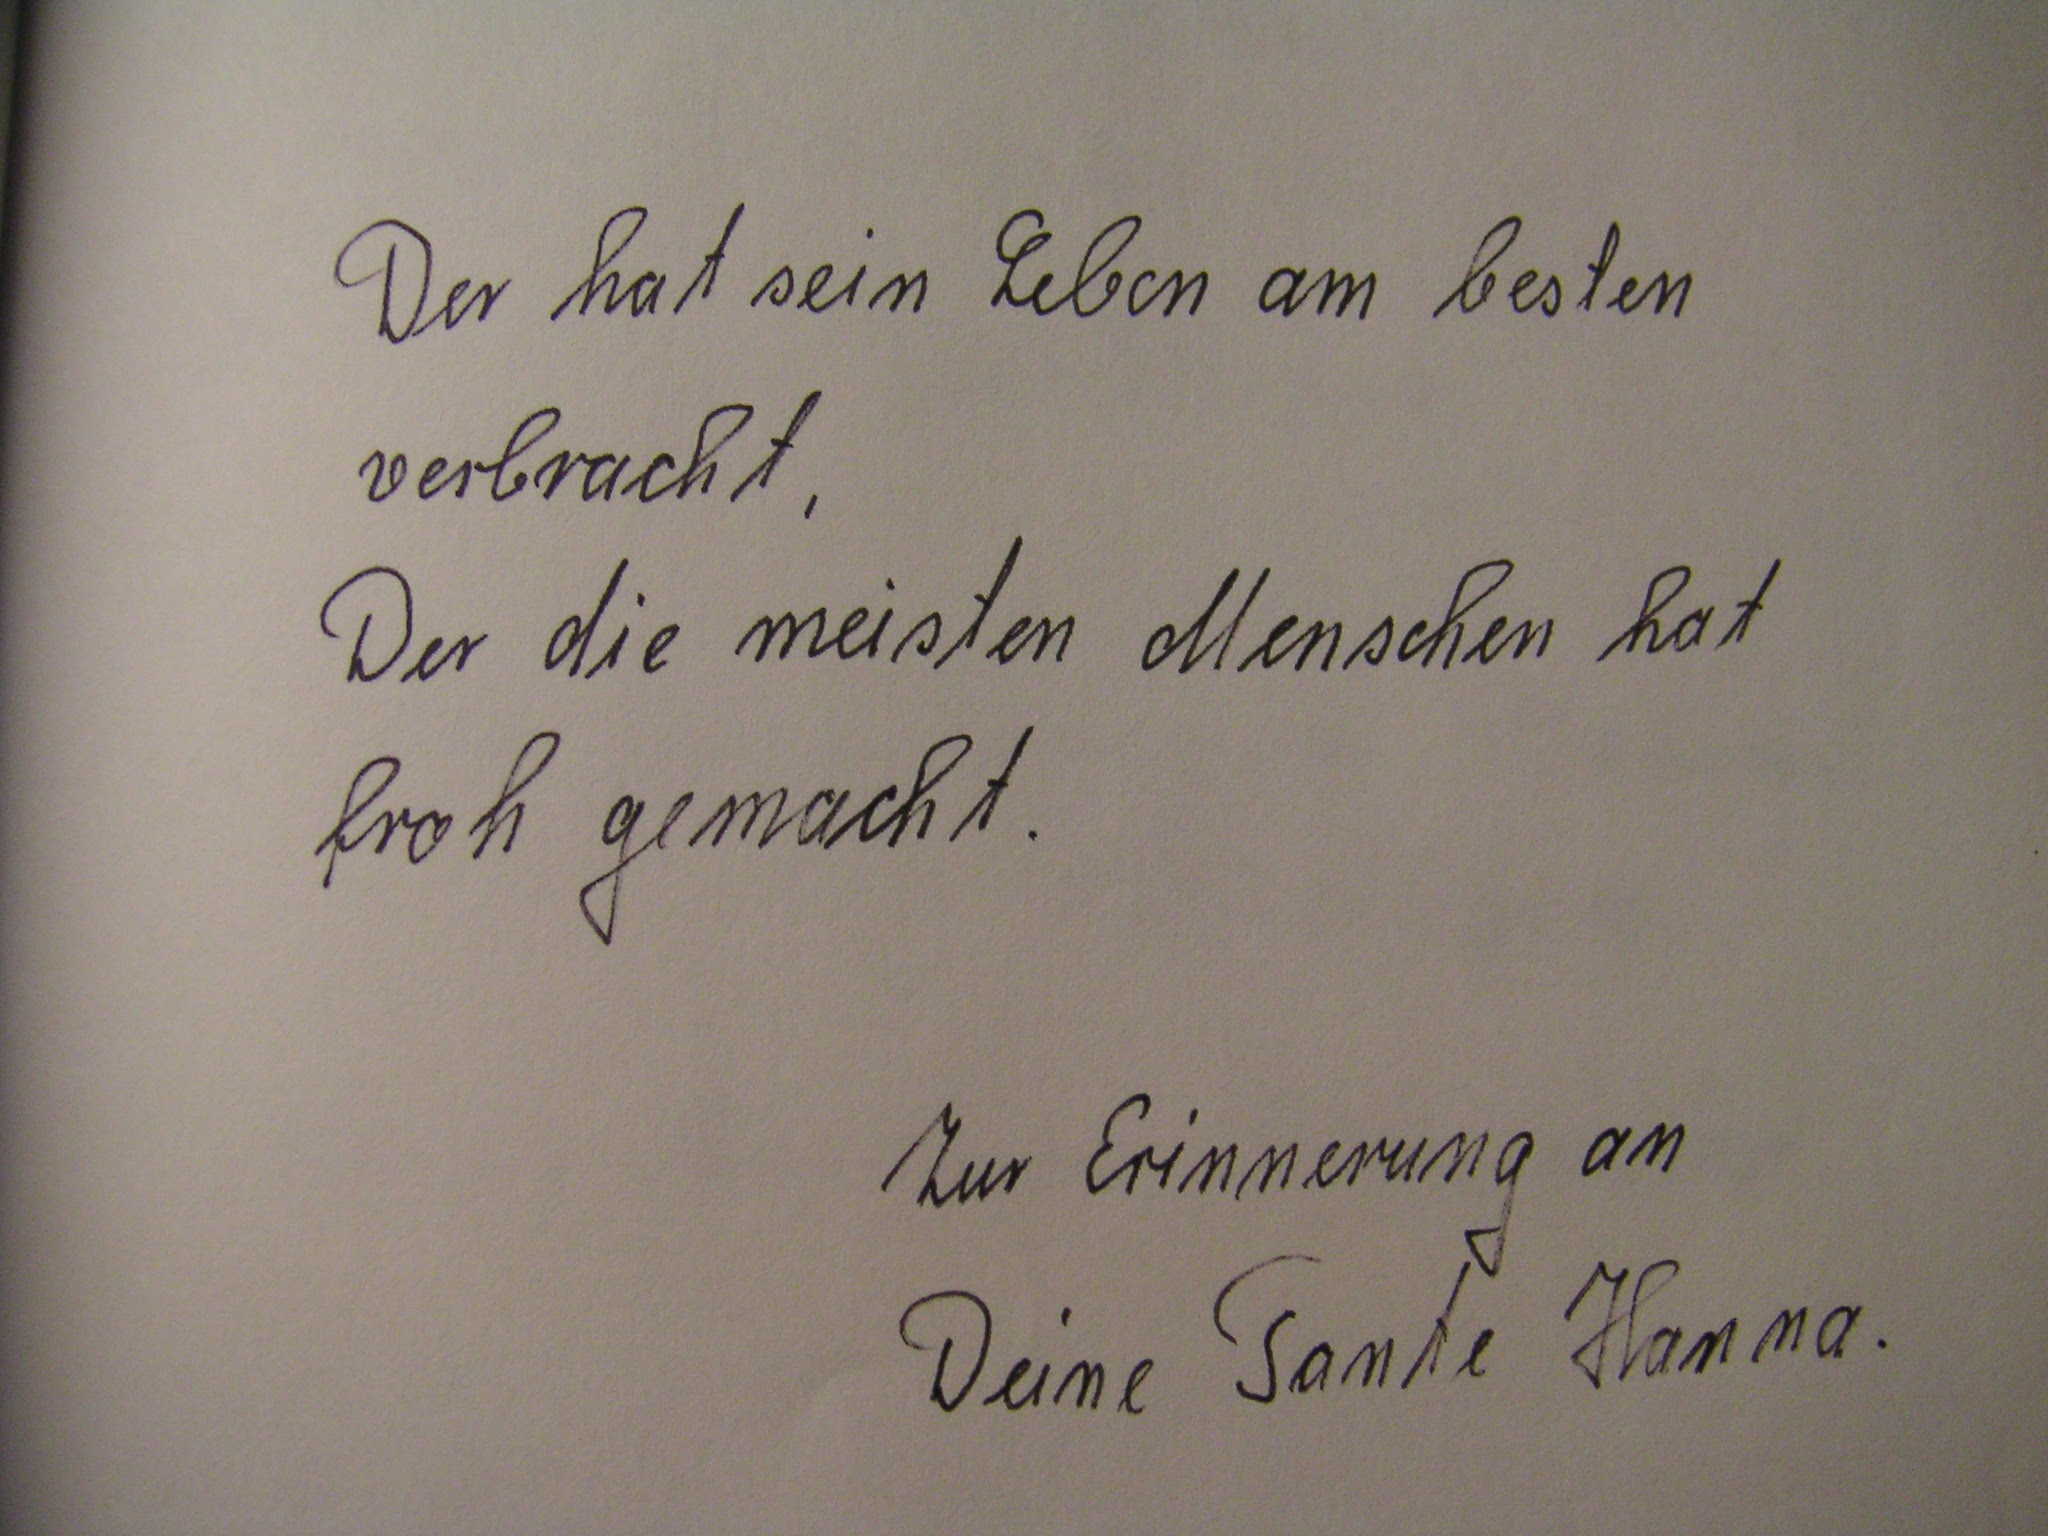 Der hat sein Leben am besten
verbracht,
Der die meisten Menschen hat
froh gemacht.
Zur Erinnerung an
Deine Tante Hanna.